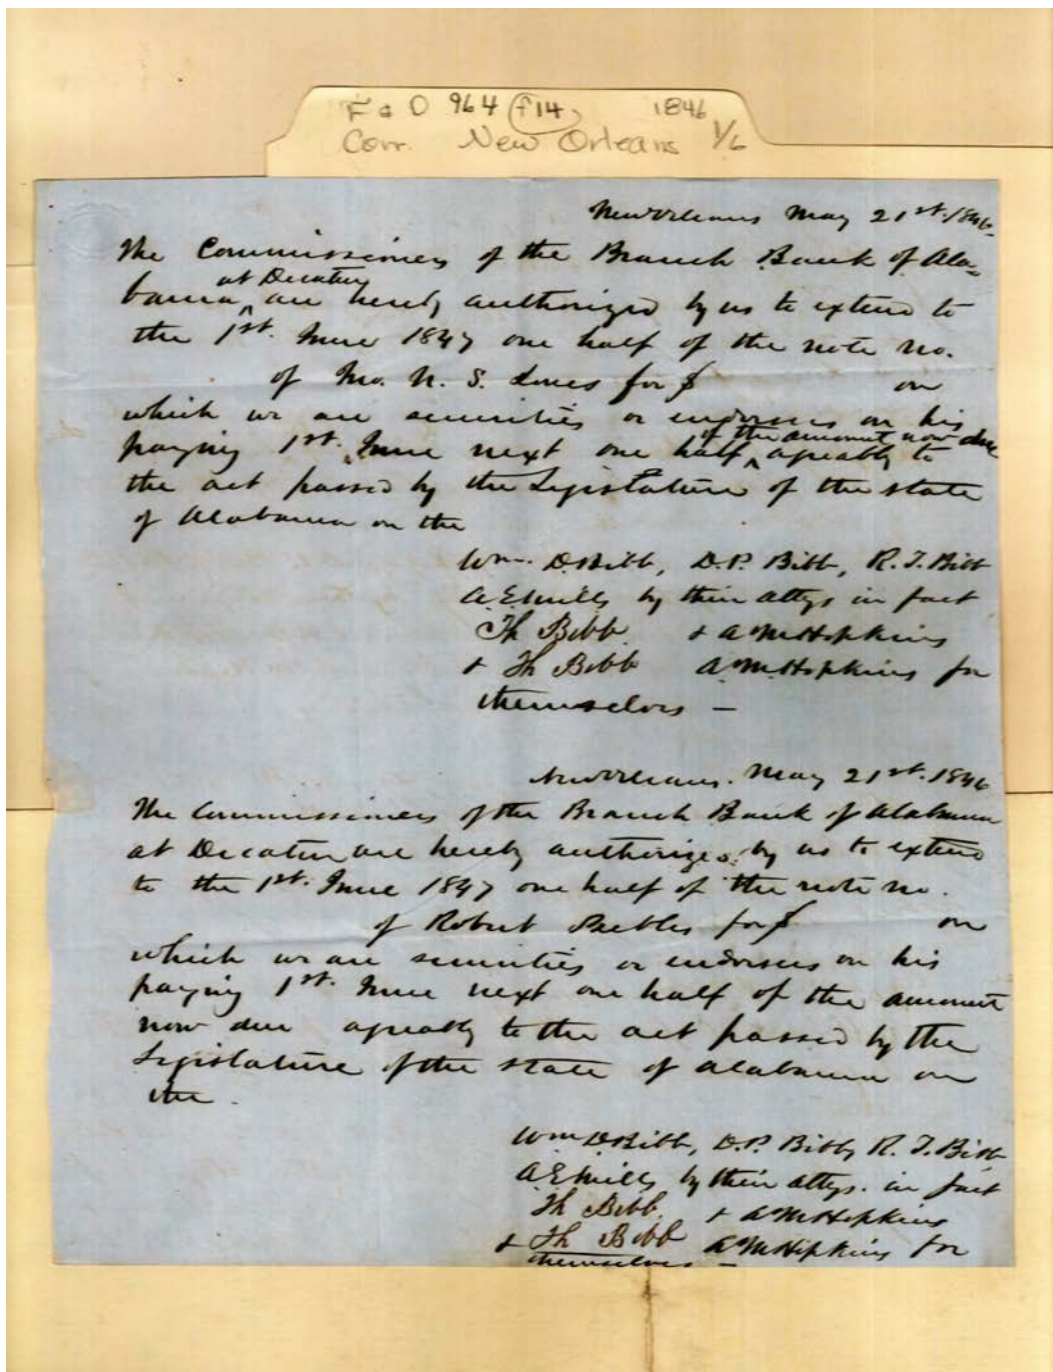 F&D 964 f14 1846
Corr. New Orleans 1/6
New Orleans May 21st. 1846.
The Commissioners of the Branch Bank of Ala=
at Decatur
bama, are hereby authorized by us to extend to
the 1st. June 1847 one half of the note no.
of Jno. N. S. Jones for $ on
which we are securities or endorsers on his
of the amount now due
paying 1st. June next one half agreably to
the act passed by the Legislature of the state
of Alabama on the
Wm. D. Bibb, D. P. Bibb, R. T. Bibb
A. E. Mills by their attys in fact
Th Bibb & A M Hopkins
& Th Bibb A M Hopkins for
themselves —
New Orleans. May 21st. 1846
The Commissioners of the Branch Bank of Alabama
at Decatur are hereby authorized by us to extend
to the 1st. June 1847 one half of the note no.
of Robert Peebles for $ on
which we are securities or endorsers on his
paying 1st. June next one half of the amount
now due agreably to the act passed by the
Legislature of the state of Alabama on
the.
Wm D Bibb, D. P. Bibb, R. T. Bibb
A. E. Mills by their attys. in fact
Th Bibb. & A M Hopkins
& Th Bibb A M Hopkins for
themselves —